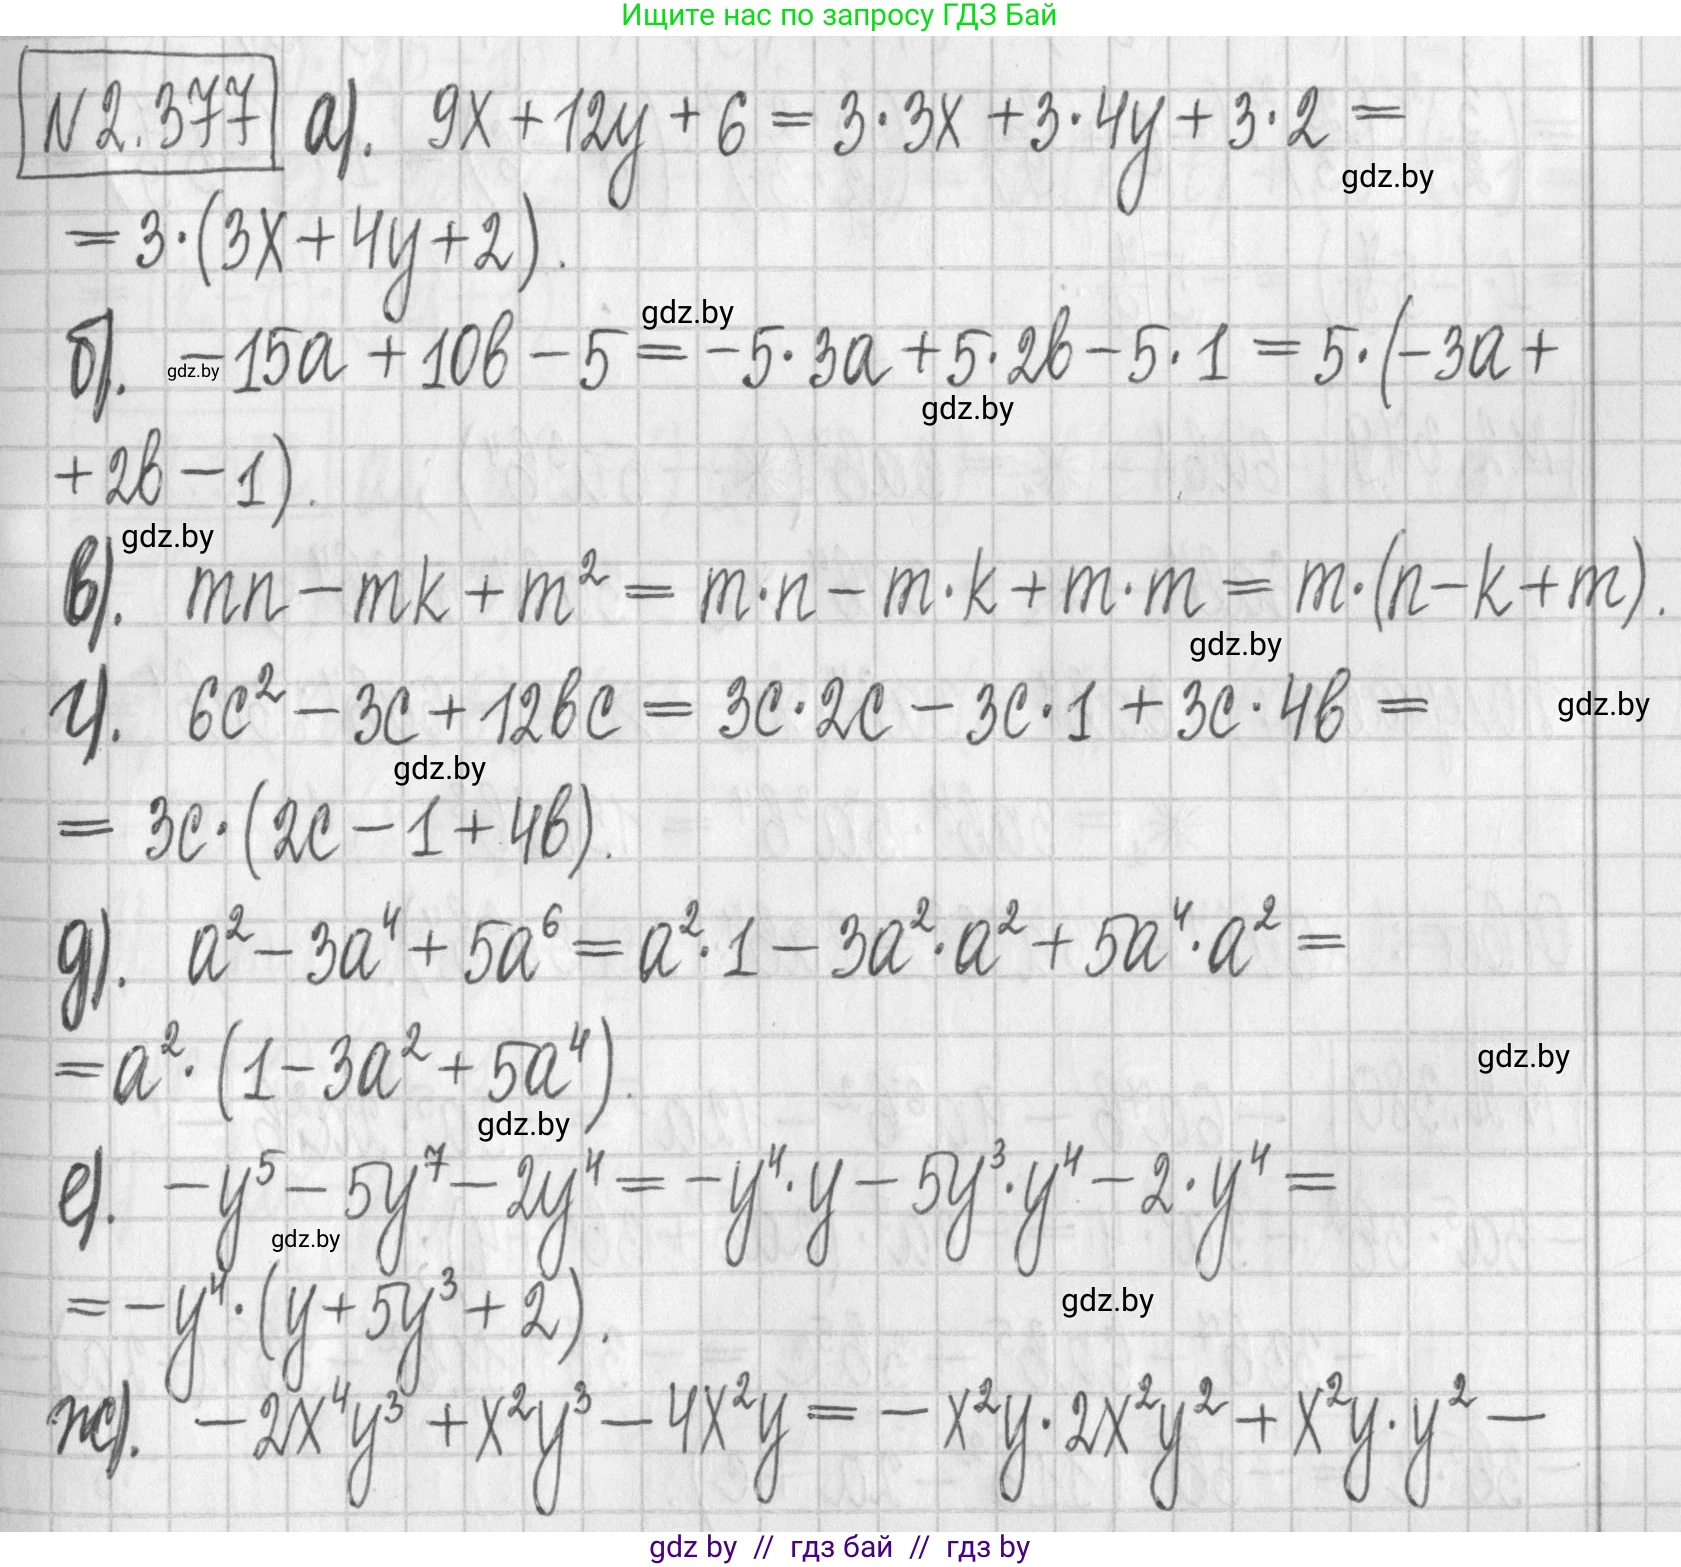 Ищите нас по запросу ГДЗ Бай
N2.377 а). 9x + 12y + 6 = 3·3x + 3·4y + 3·2 =
gdz.by
= 3·(3x + 4y + 2).
gdz.by
б). -15a + 10b - 5 = -5·3a + 5·2b - 5·1 = 5·(-3a +
gdz.by
gdz.by
+ 2b - 1).
gdz.by
в). mn - mk + m² = m·n - m·k + m·m = m·(n - k + m).
gdz.by
г). 6c² - 3c + 12bc = 3c·2c - 3c·1 + 3c·4b =
gdz.by
gdz.by
= 3c·(2c - 1 + 4b).
д). a² - 3a⁴ + 5a⁶ = a²·1 - 3a²·a² + 5a⁴·a² =
= a²·(1 - 3a² + 5a⁴).
gdz.by
gdz.by
е). -y⁵ - 5y⁷ - 2y⁴ = -y⁴·y - 5y³·y⁴ - 2·y⁴ =
gdz.by
= -y⁴·(y + 5y³ + 2).
gdz.by
ж). -2x⁴y³ + x²y³ - 4x²y = -x²y·2x²y² + x²y·y² -
gdz by // гдз бай // гдз by